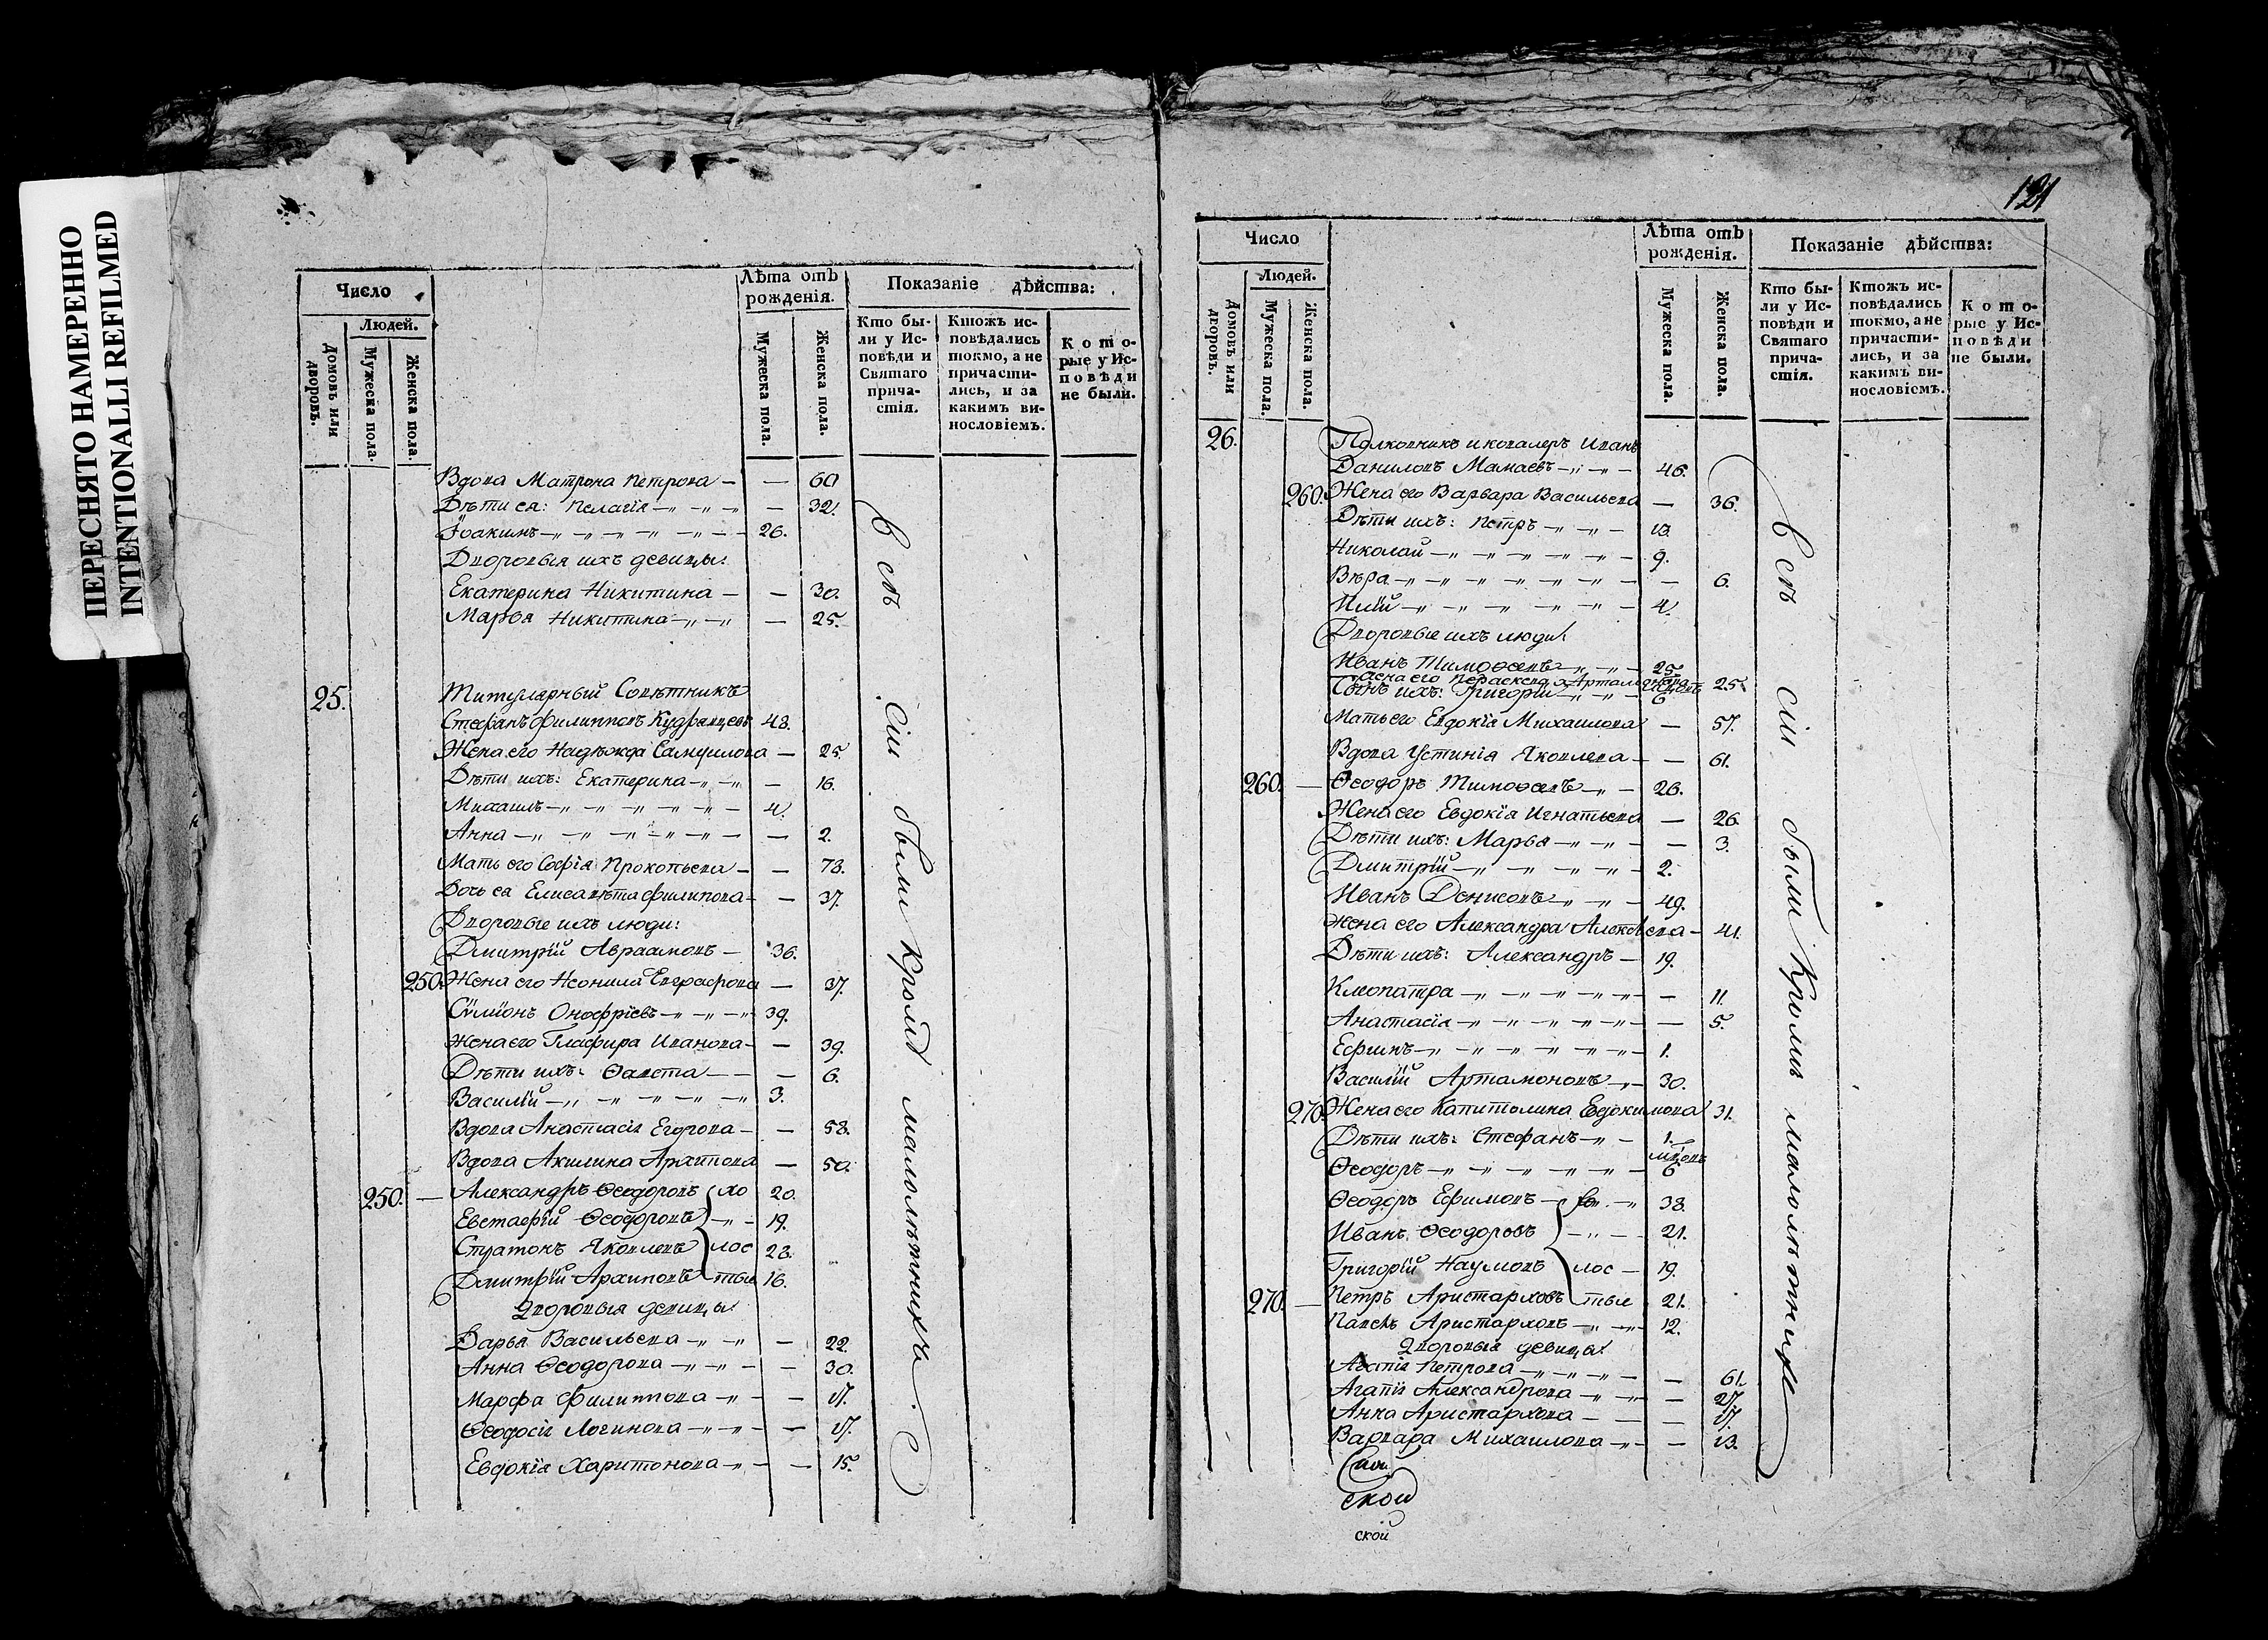 ПЕРЕСНЯТО НАМЕРЕННО
INTENTIONALLI REFILMED
Число
Лѣта отъ рожденія.
Показаніе дѣйства:
Людей.
Домовъ или дворовъ.
Мужеска пола.
Женска пола.
Мужеска пола.
Женска пола.
Кто бы-
ли у Ис-
повѣди и
Святаго
прича-
стія.
Ктожъ ис-
повѣдались
токмо, а не
причасти-
лись, и за
какимъ ви-
нословіемъ.
К о т о-
рые у Ис-
п о в ѣ д и
не были.
Вдова Матрона Петрова — — 60
Дѣти ея: Пелагія — — 32.
Іоакимъ — 26.
Дворовыя ихъ девицы:
Екатерина Никитина — — 30.
Марья Никитина — — 25.
25. Титулярный Совѣтникъ
Стефанъ Филипповъ Кудрявцевъ 43.
Жена его Надѣжда Самуилова — 25.
Дѣти ихъ: Екатерина — — 16.
Михаилъ — 4.
Анна — — 2.
Мать его Софія Прокопьева — — 73.
Дочь ея Елисавѣта Филипова — — 37.
Дворовые ихъ люди:
Дмитрій Авраамовъ — 36.
250. Жена его Неонила Евграфова — 37.
Сѵміонъ Онофріевъ — 39.
Жена его Глафира Иванова — — 39.
Дѣти ихъ: Ѳавста — — 6.
Василій — 3.
Вдова Анастасія Егорова — — 58.
Вдова Акилина Архипова — 50.
250. — Александръ Ѳеодоровъ хо 20.
Евстафій Ѳеодоровъ — 19.
Стратонъ Яковлевъ лос 23.
Дмитрій Архиповъ тые 16.
Дворовыя девицы:
Дарья Васильева — — 22.
Анна Ѳеодорова — — 30.
Марфа Филиппова — — 17.
Ѳеодосія Логинова — — 17.
Евдокія Харитонова — — 15.
всѣ сіи были Кромѣ малолѣтнихъ.
121
Число
Лѣта отъ рожденія.
Показаніе дѣйства:
Людей.
Домовъ или дворовъ.
Мужеска пола.
Женска пола.
Мужеска пола.
Женска пола.
Кто бы-
ли у Ис-
повѣди и
Святаго
прича-
стія.
Ктожъ ис-
повѣдались
токмо, а не
причасти-
лись, и за
какимъ ви-
нословіемъ.
К о т о-
рые у Ис-
п о в ѣ д и
не были.
26. Полковникъ и ковалеръ Иванъ
Даниловъ Мамаевъ — 46.
260. Жена его Варвара Васильева — 36.
Дѣти ихъ: Петръ — 13.
Николай — 9.
Вѣра — — 6.
— 4.
Дворовые ихъ люди:
Иванъ Тимоѳеевъ — 25.
Жена его Параскева Артамонова — 25.
Сынъ ихъ: Григорій — 6
Мать его Евдокія Михаилова — 57.
Вдова Устинія Яковлева — — 61.
260. — Ѳеодоръ Тимоѳеевъ — 26.
Жена его Евдокія Игнатьева — 26.
Дѣти ихъ: Марья — — 3.
Дмитрій — 2.
Иванъ Денисовъ — 49.
Жена его Александра Алексѣева — 41.
Дѣти ихъ: Александръ — 19.
Клеопатра — — 11.
Анастасія — — 5.
Ефимъ — 1.
Василій Артамоновъ — 30.
270. Жена его Капитолина Евдокимова 31.
Дѣти ихъ: Стефанъ — 1.
Ѳеодоръ — 6
Ѳеодоръ Ефимовъ — 38.
Иванъ Ѳеодоровъ — 21.
Григорій Наумовъ лос — 19.
270. — Петръ Аристарховъ тые 21.
Павелъ Аристарховъ — 12.
Дворовыя девицы:
Агапія Петрова — — 61.
Агапія Александрова — — 27.
Анна Аристархова — — 17.
Варвара Михаилова — — 13.
ской
ской
всѣ сіи были Кромѣ малолѣтнихъ